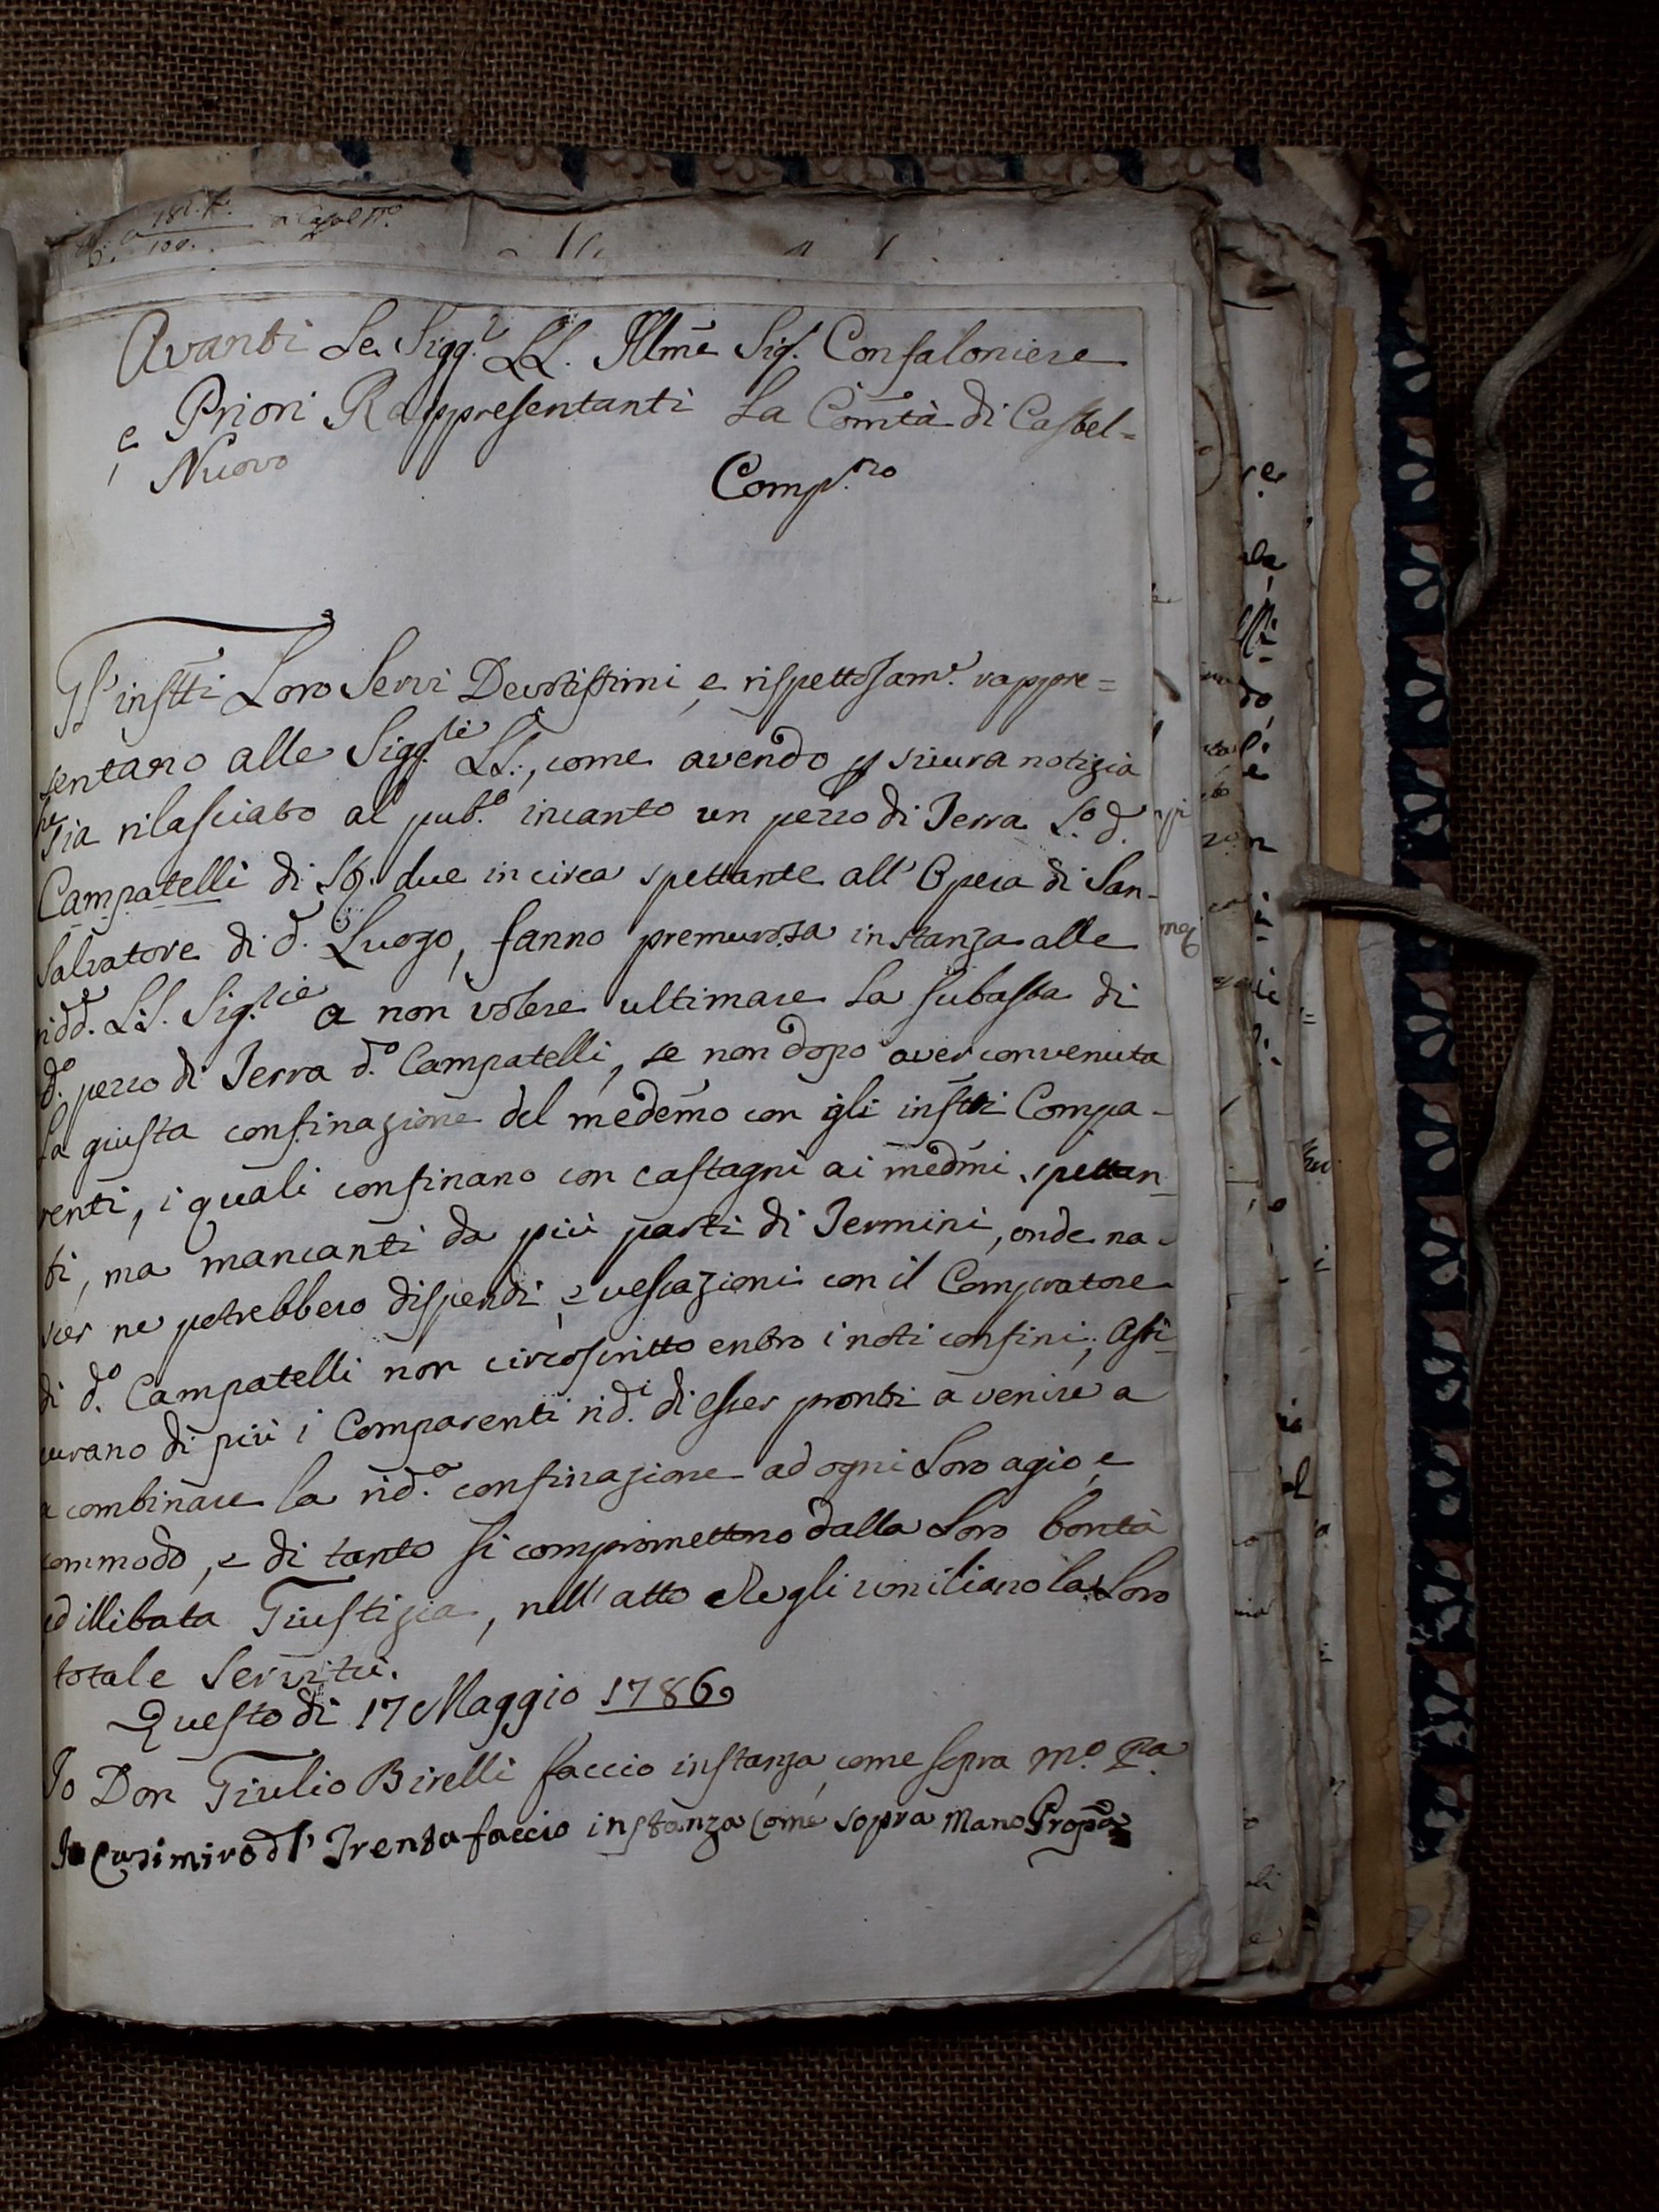 Avanti Le Sigg.e LL. Illme Sig. Confaloniere
e Priori Rappresentanti La Comtà di Castel=
Nuovo
Comp.no
Gl' instti Loro Servi Devotissimi, e rispettosam.e rappre=
sentano alle Sigg.rie LL., come avendo p sicura notizia
che sia rilasciato al pub.o incanto un pezzo di Terra L.o d.
Campatelli di Sq. due in circa spettante all' Opera di San-
Salvatore di d. Luogo, fanno premurosa instanza alle
ridd. LL. Sig.rie a non volere ultimare La subasta di
d.o pezzo di Terra d.o Campatelli, se non dopo aver convenuta
La giusta confinazione del medemo con gli instti Compa-
renti, i quali confinano con castagni ai medmi spettan-
ti, ma mancanti da più parti di Termini, onde na-
scer ne potrebbero dispendi, e vessazioni con il Compratore
di d.o Campatelli non circoscritto entro i noti confini; Assi-
curano di più i Comparenti rid.i di esser pronti a venire a
a combinare la rid.a confinazione ad ogni Loro agio, e
commodo, e di tanto si compromettono dalla Loro bontà
ed illibata Giustizia, nell' atto che gli conciliano la Loro
totale Servitù.
Questo dì 17 Maggio 1786
Io Don Giulio Birelli faccio instanza come sopra m.o p.a
Io Casimiro d l' Trenta faccio instanza Come sopra Mano Propa